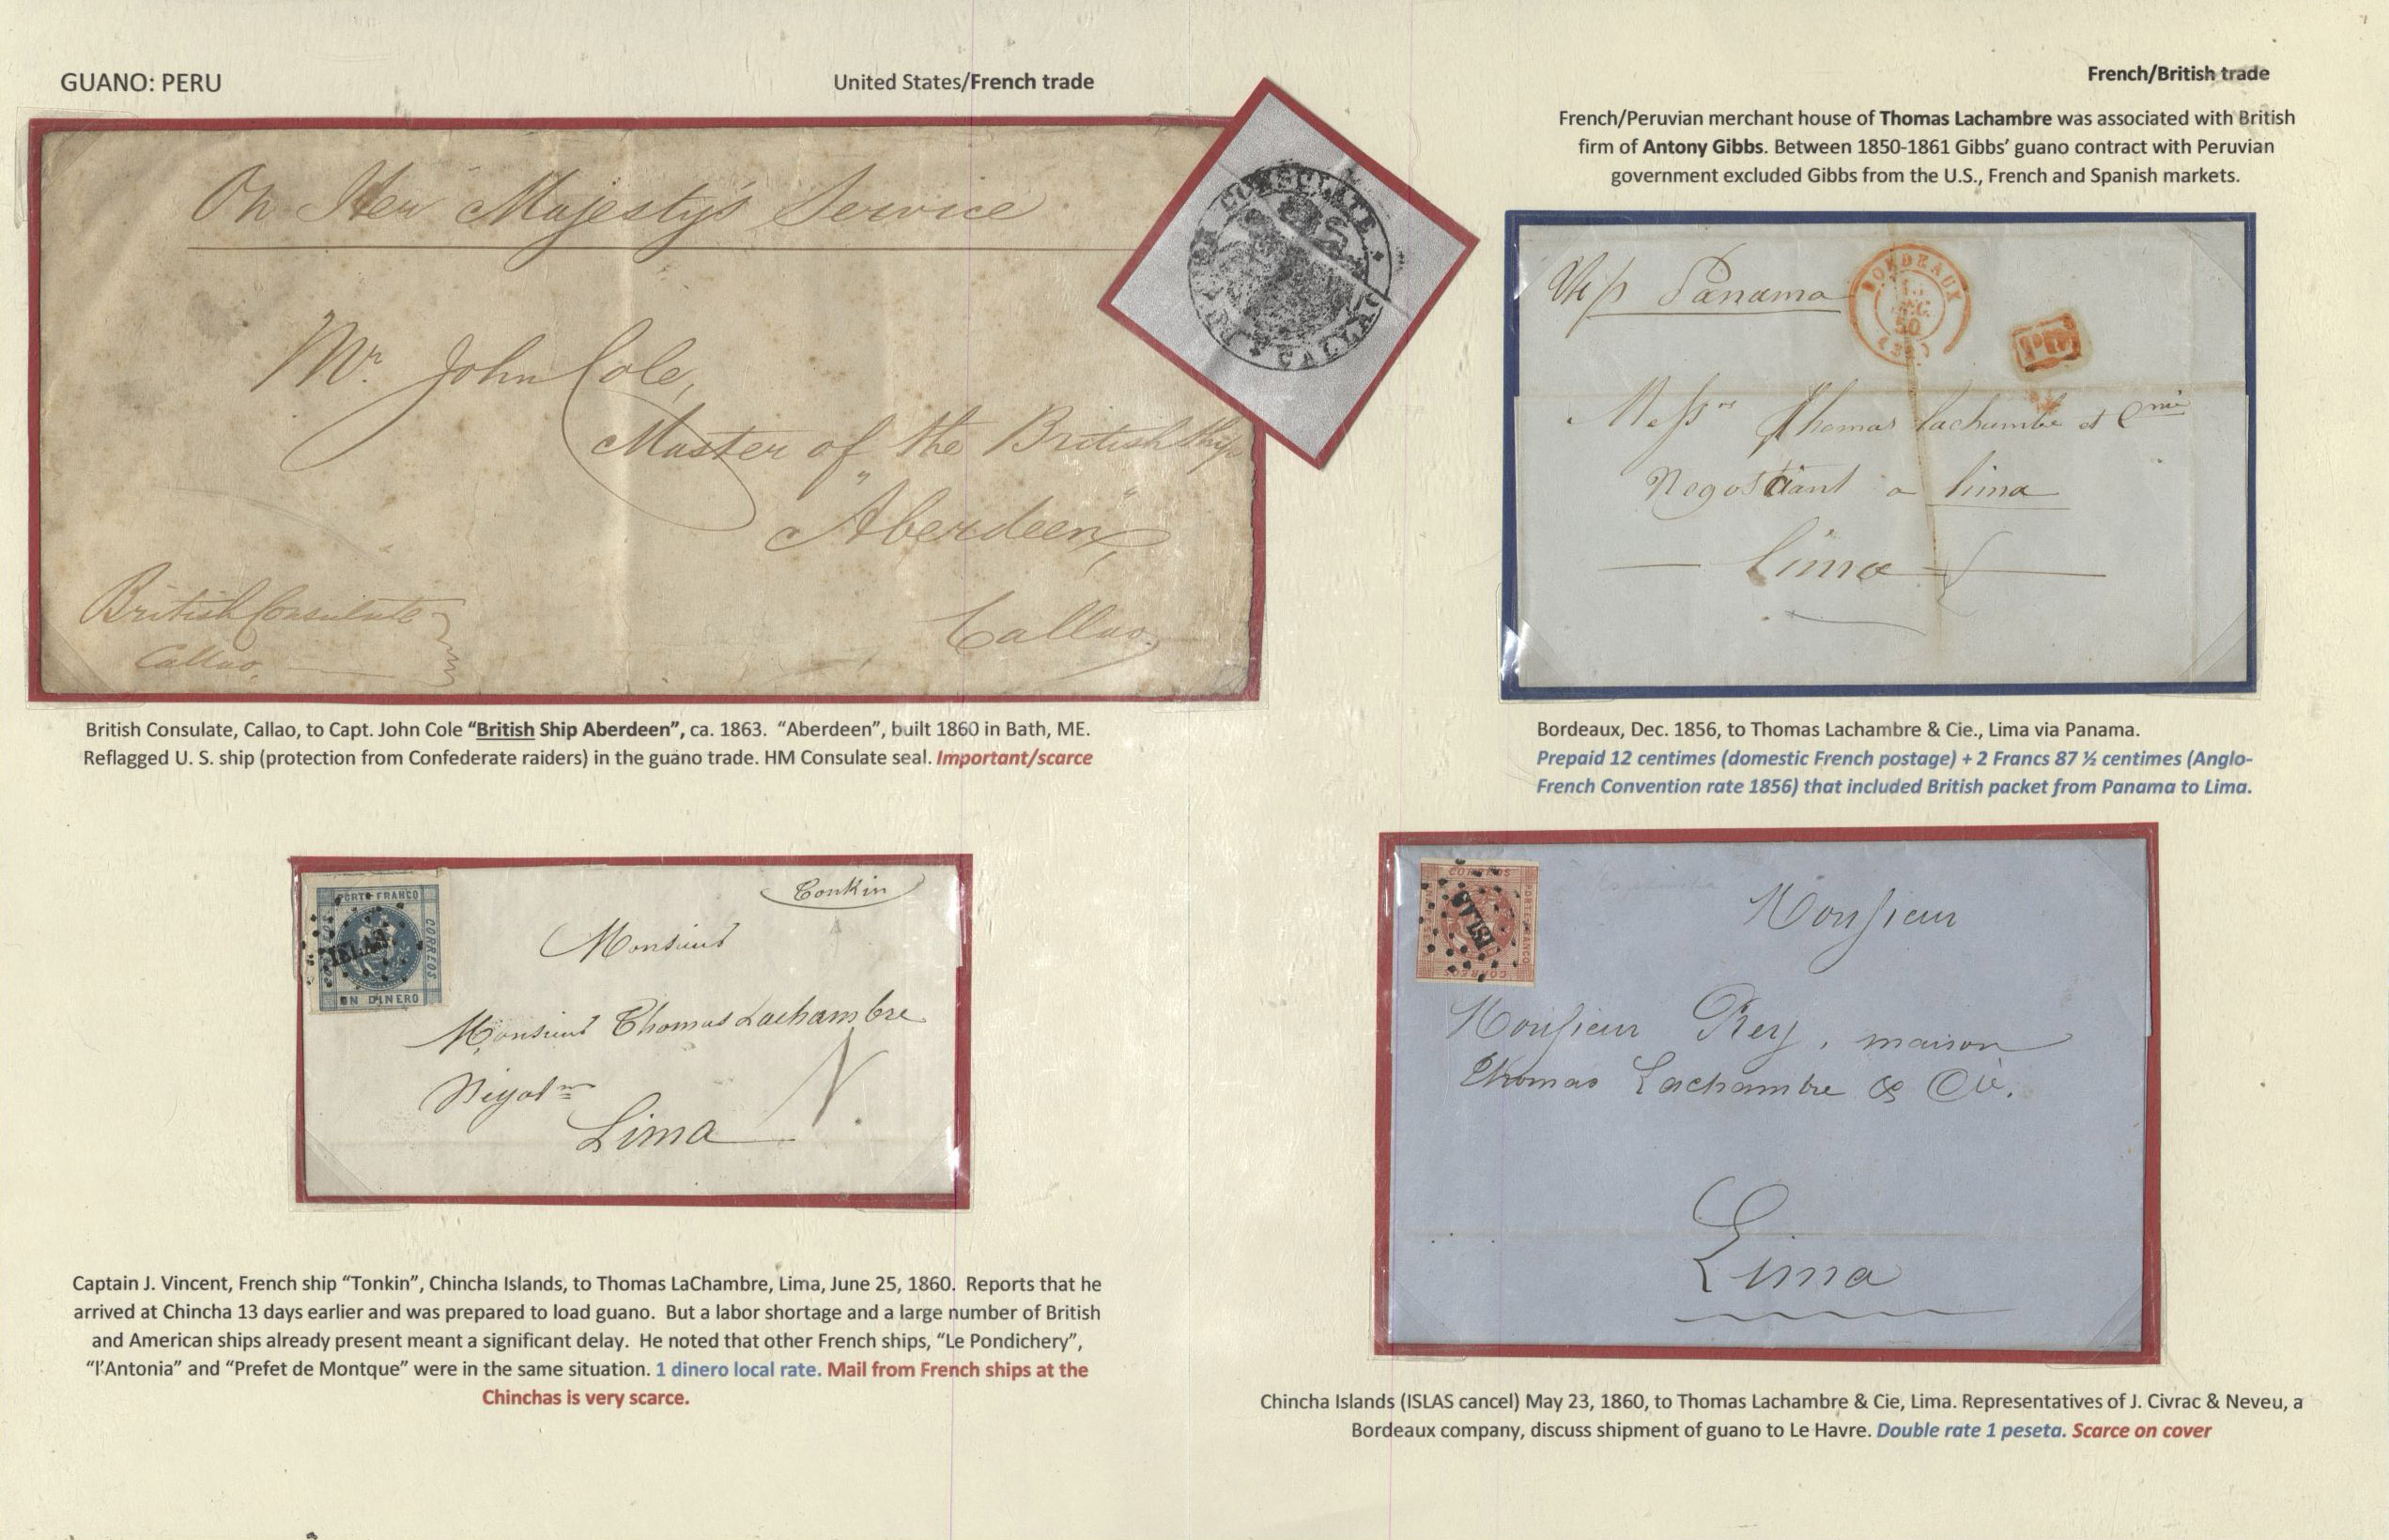 GUANO: PERU
United States/French trade
On Her Majesty's Service
Mr. John Cole,
Master of the British Ship
"Aberdeen",
Callao.
British Consulate
Callao.
CONSULATE
CALLAO
British Consulate, Callao, to Capt. John Cole “British Ship Aberdeen”, ca. 1863. “Aberdeen”, built 1860 in Bath, ME.
Reflagged U. S. ship (protection from Confederate raiders) in the guano trade. HM Consulate seal. Important/scarce
PORTE FRANCO
CORREOS
UN DINERO
ISLAS
Tonkin
Monsieur
Monsieur Thomas Lachambre
Lima
Captain J. Vincent, French ship “Tonkin”, Chincha Islands, to Thomas LaChambre, Lima, June 25, 1860. Reports that he
arrived at Chincha 13 days earlier and was prepared to load guano. But a labor shortage and a large number of British
and American ships already present meant a significant delay. He noted that other French ships, “Le Pondichery”,
“l’Antonia” and “Prefet de Montque” were in the same situation. 1 dinero local rate. Mail from French ships at the
Chinchas is very scarce.
French/British trade
French/Peruvian merchant house of Thomas Lachambre was associated with British
firm of Antony Gibbs. Between 1850-1861 Gibbs’ guano contract with Peruvian
government excluded Gibbs from the U.S., French and Spanish markets.
Panama
BORDEAUX
Thomas Lachambre et Cnie
Negociant a Lima
Lima
Bordeaux, Dec. 1856, to Thomas Lachambre & Cie., Lima via Panama.
Prepaid 12 centimes (domestic French postage) + 2 Francs 87 ½ centimes (Anglo-
French Convention rate 1856) that included British packet from Panama to Lima.
CORREOS
PORTE FRANCO
CORREOS
ISLAS
Monsieur
Monsieur Rey, maison
Thomas Lachambre & Cie.
Lima
Chincha Islands (ISLAS cancel) May 23, 1860, to Thomas Lachambre & Cie, Lima. Representatives of J. Civrac & Neveu, a
Bordeaux company, discuss shipment of guano to Le Havre. Double rate 1 peseta. Scarce on cover